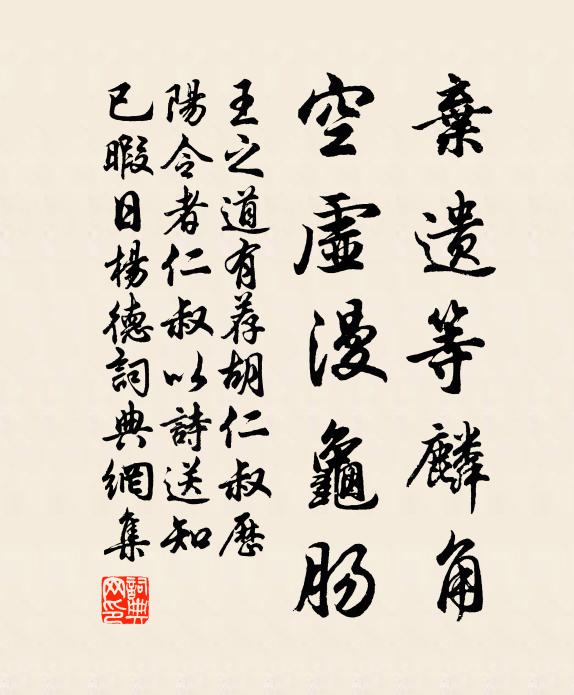 棄遺等麟角
空虛漫龜腸
王之道有荐胡仁叔歷
陽令者仁叔以詩送知
己暇日楊德詞典網集
詞典網印